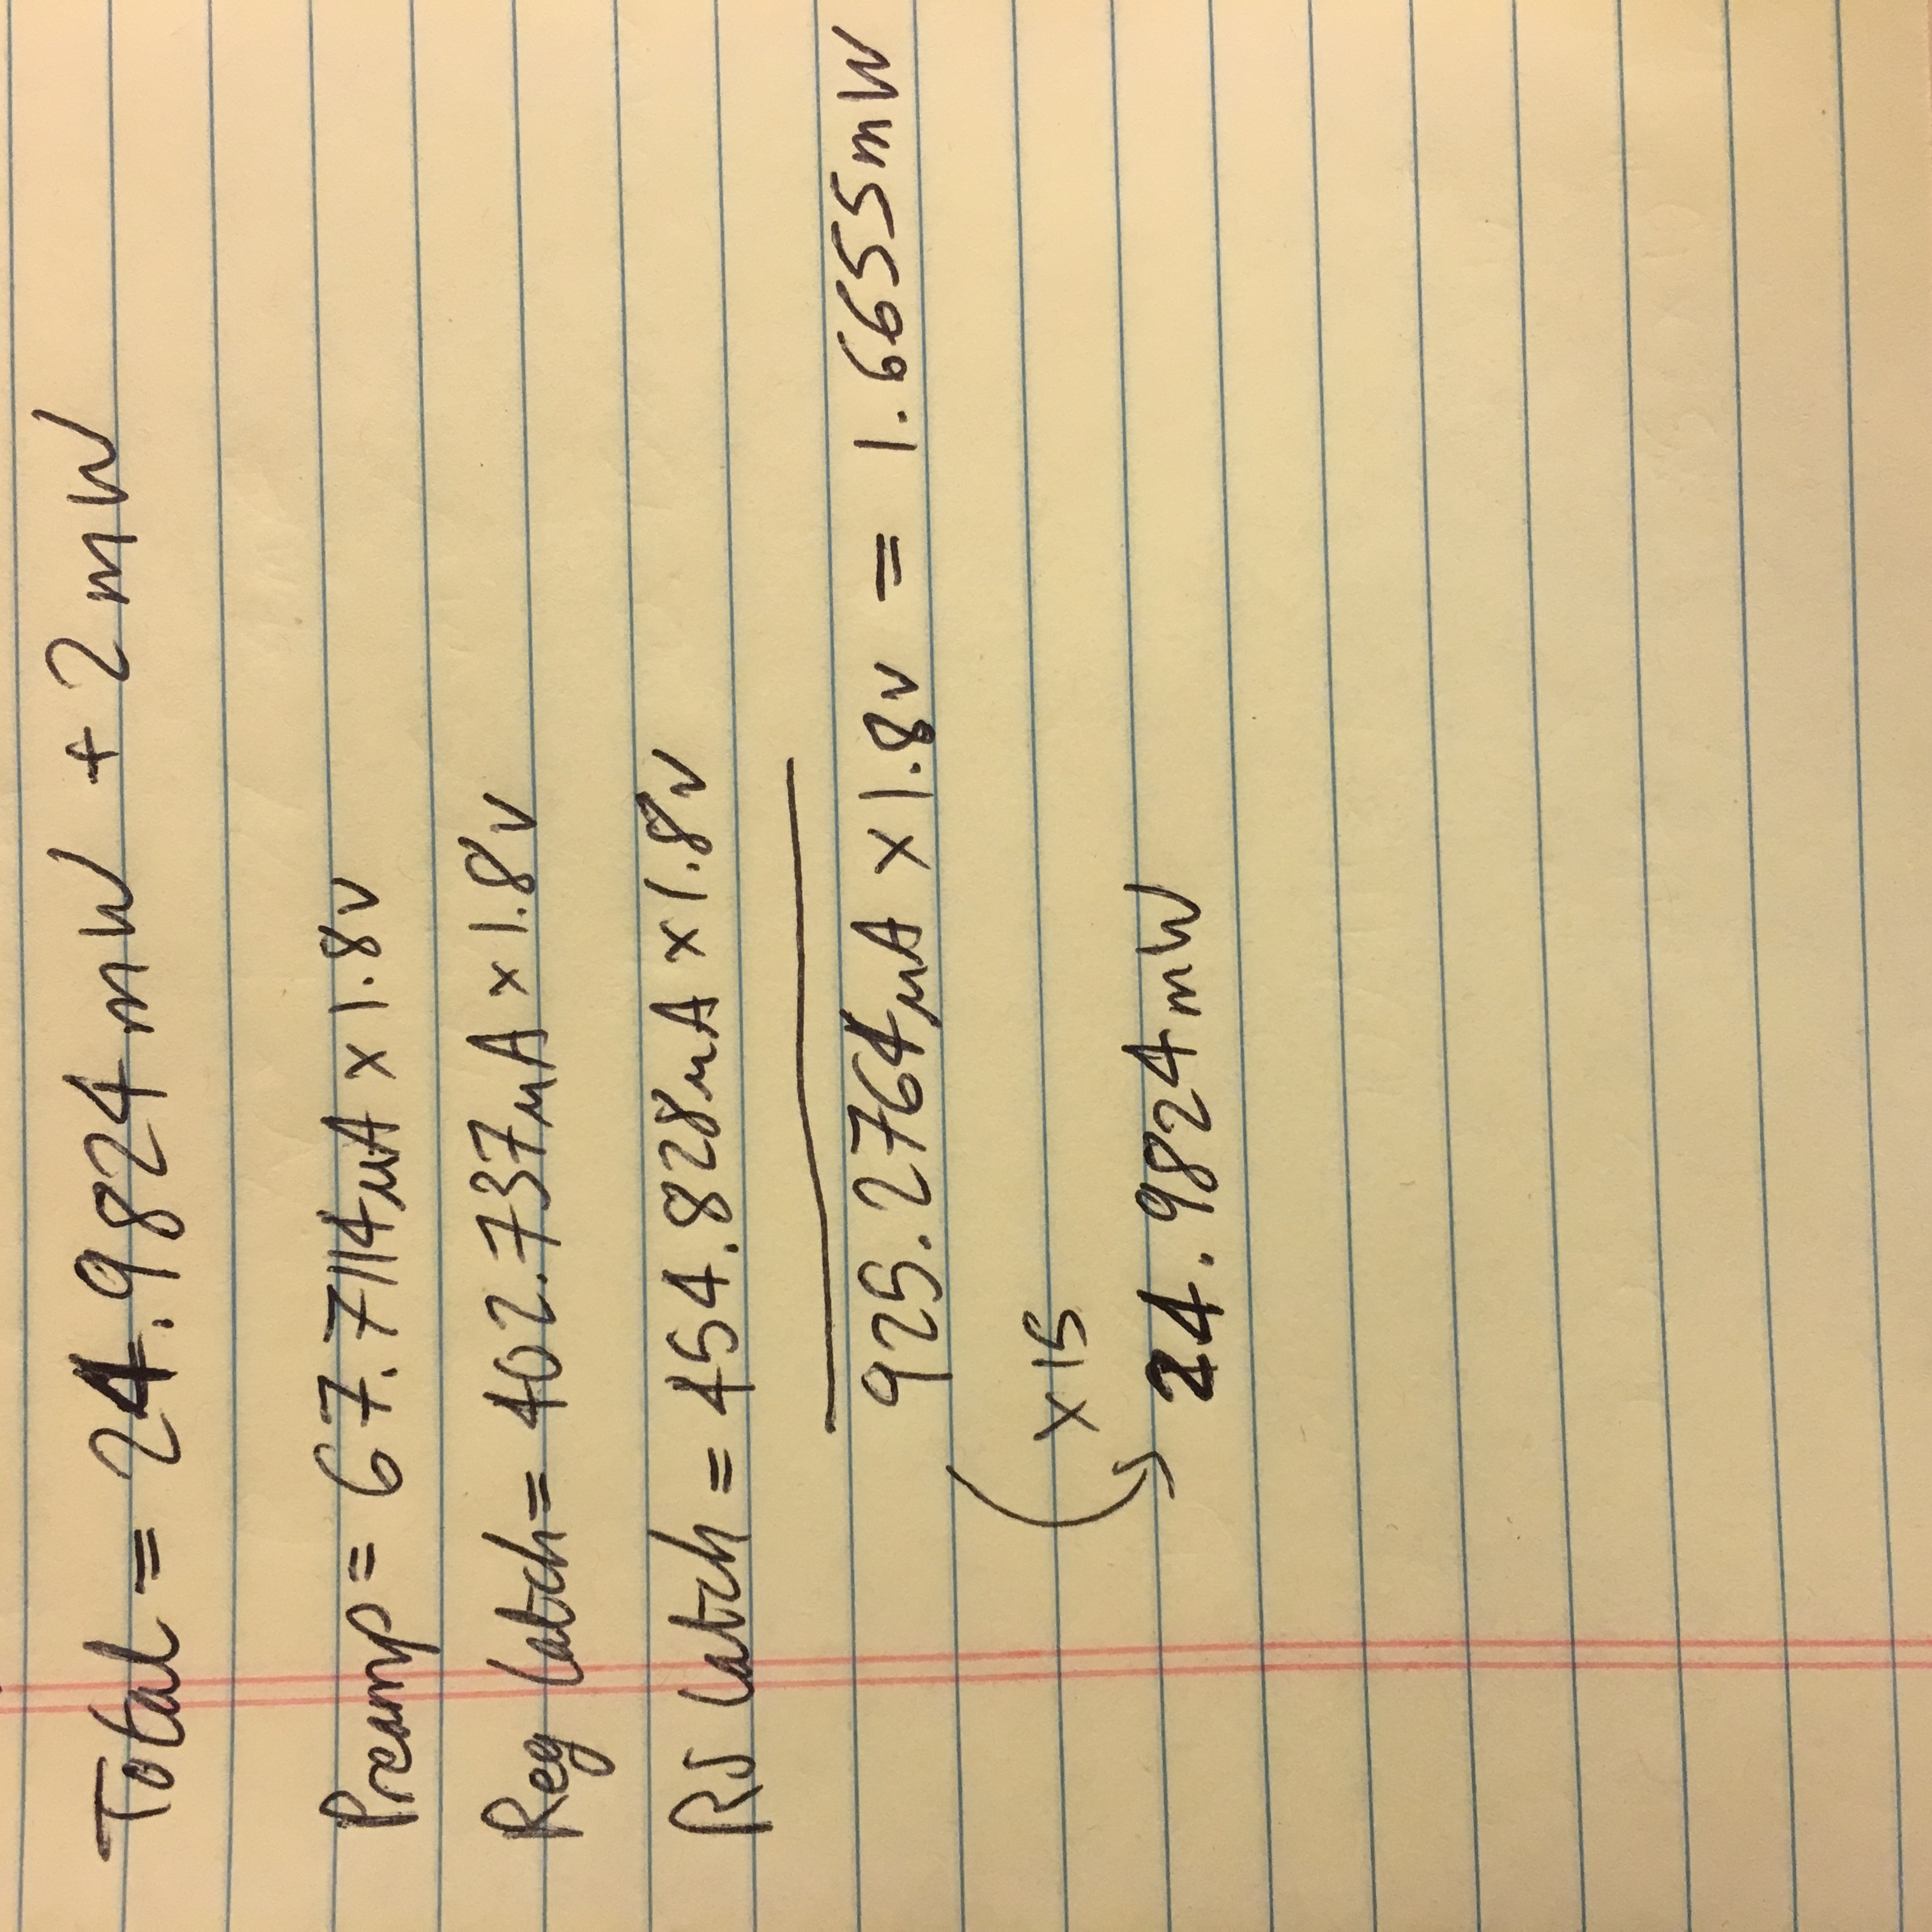 Total = 24.9824mW + 2mW
Preamp = 67.7114μA x 1.8v
Reg latch = 402.737μA x 1.8v
RS latch = 454.828μA x 1.8v
925.2764μA x 1.8v = 1.6655mW
x15
24.9824mW